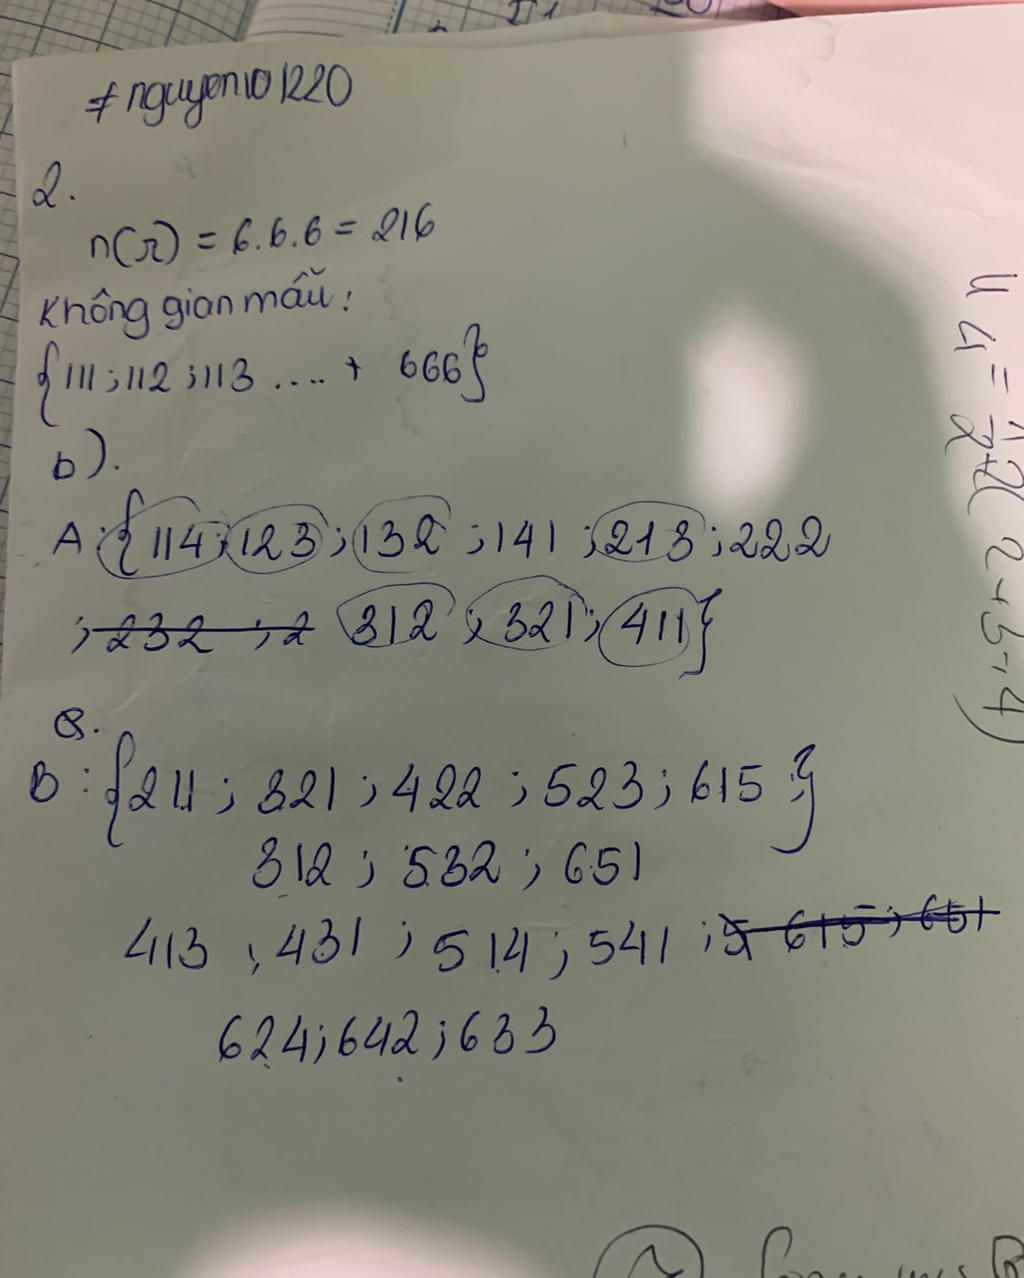 # nguyen101220
2.
n(Ω) = 6.6.6 = 216
Không gian mẫu:
{111;112;113 .... + 666}
b).
A:{114;123;132;141;213;222
;232;2 312;321;411}
B:{211;321;422;523;615}
312;532;651
413;431;514;541;5 615;651
624;642;633